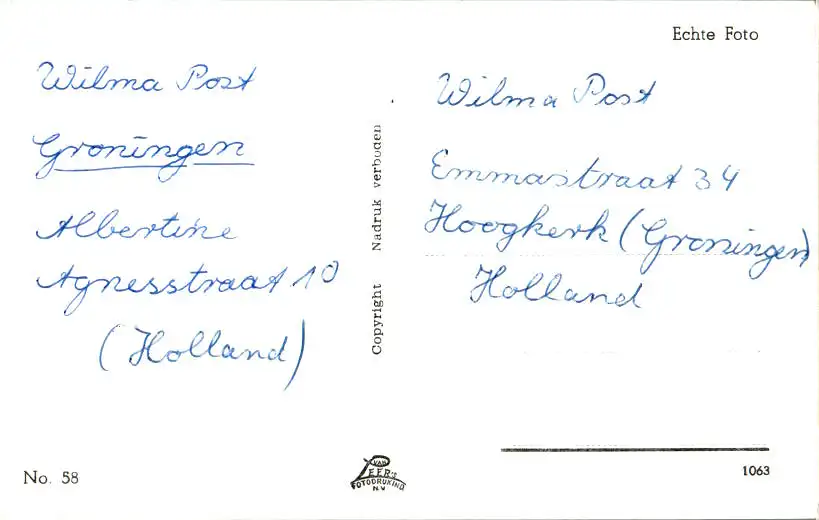 Echte Foto
Wilma Post
Groningen
Albertine
Agnesstraat 10
(Holland)
Copyright Nadruk verboden
Wilma Post
Emmastraat 34
Hoogkerk (Groningen)
Holland
No. 58
VAN LEER'S
FOTODRUKIND
N.V.
1063